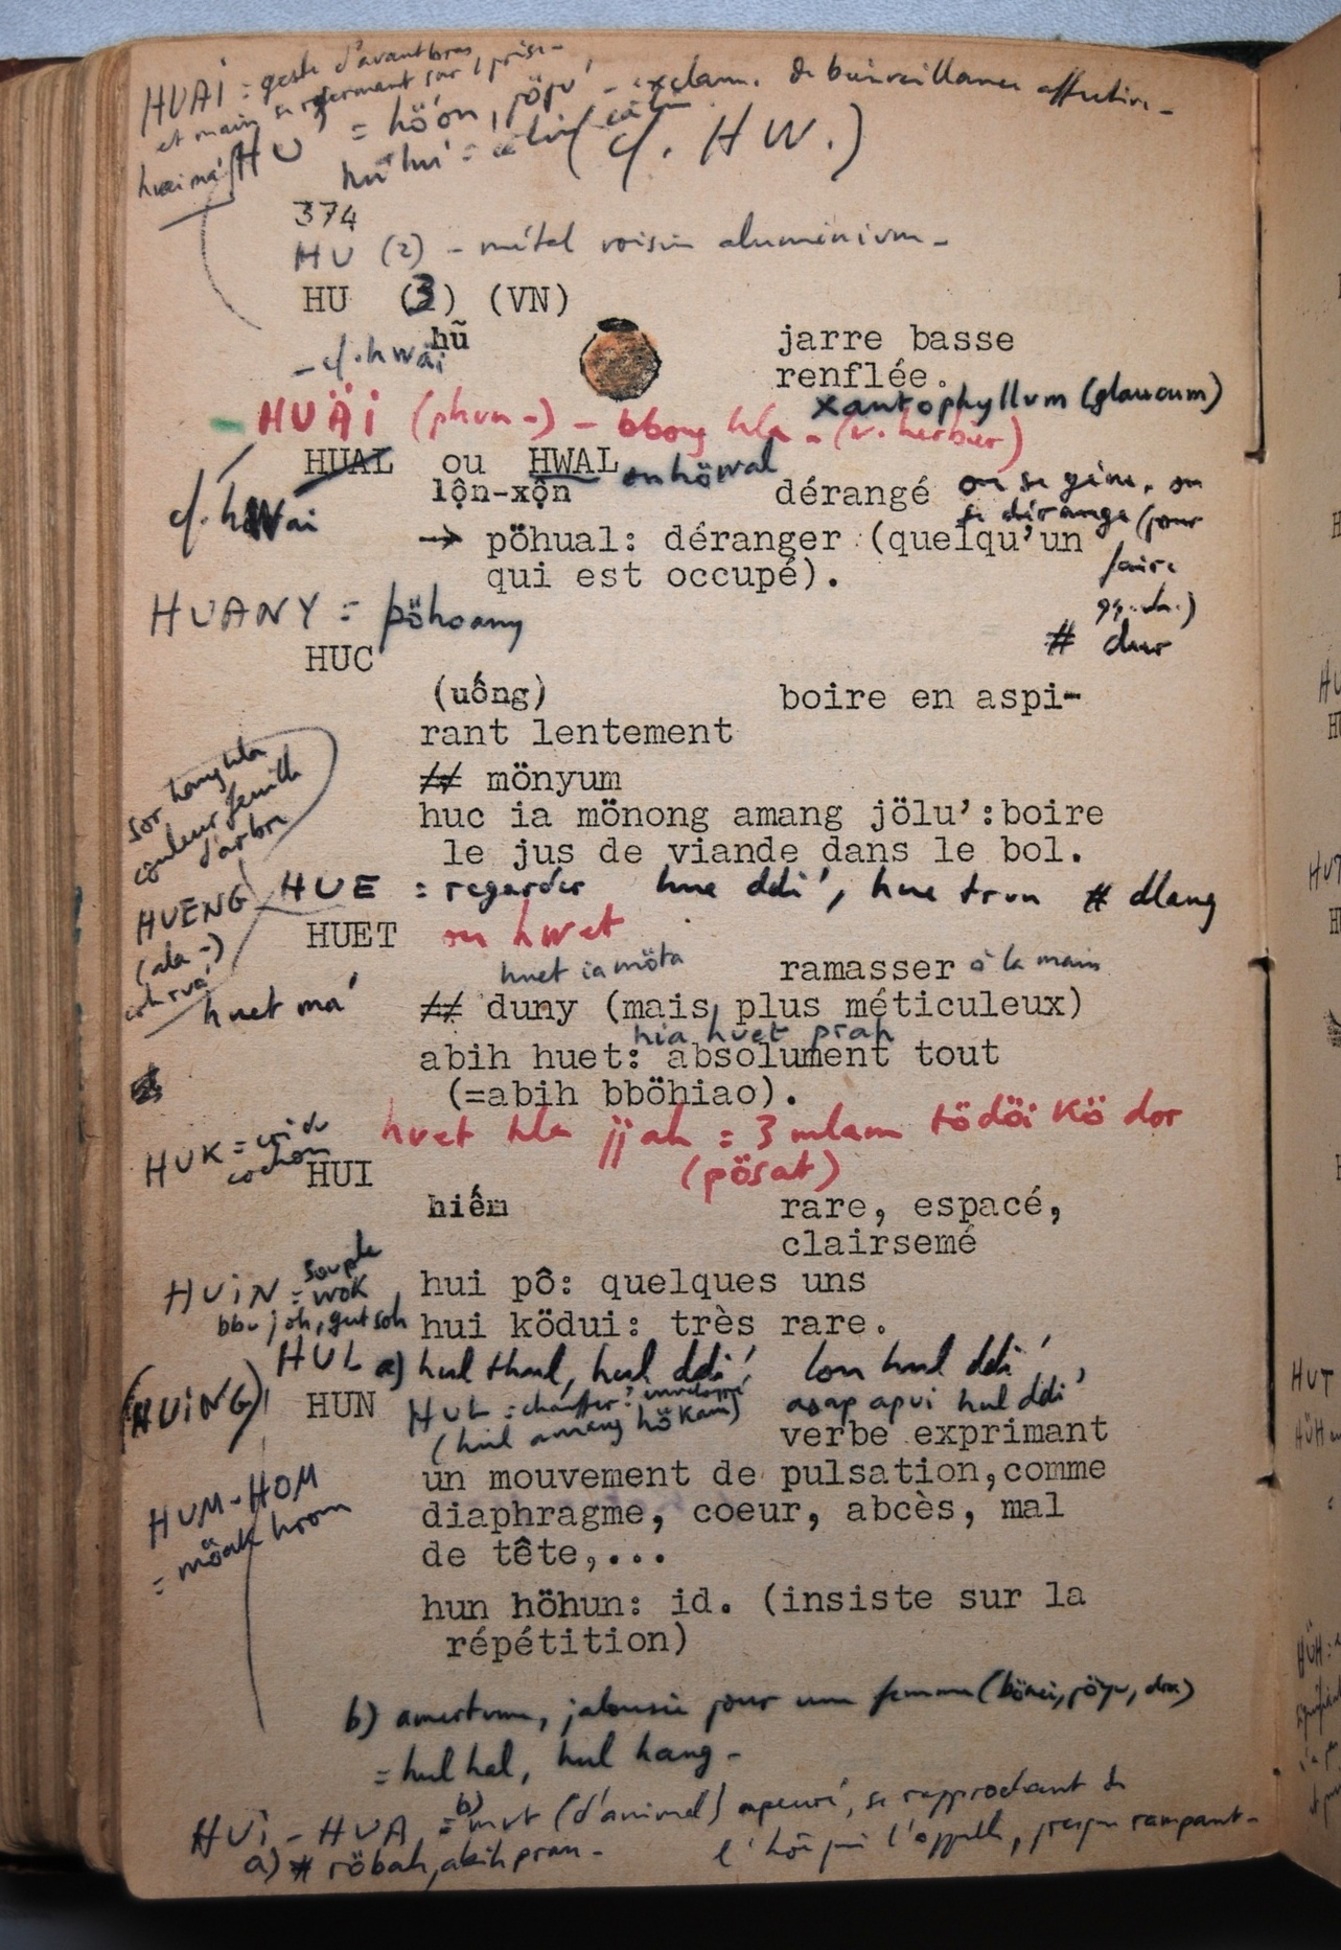 HUAI = geste d'avantbras
et main se refermant sur 1 prise-
huai má
HU = hö'ôn, pögu' - exclam. de bienveillance affective -
(cf. HW.)
374
HU (2) - métal voisin aluminium -
HU (3) (VN)
hũ jarre basse
renflée.
- cf. hwai
xantophyllum (glaucum)
HUÄI (phun -) - bbong hla - (v. herbier)
HUAL ou HWAL ou höwal
lộn-xộn dérangé on se gêne, on
se dérange (pour
faire
qq. ch.)
cf. hWai
→ pöhual: déranger (quelqu'un
qui est occupé).
HUANY = pöhoany
# dur
HUC
(uống) boire en aspi-
rant lentement
## mönyum
huc ia mönong amang jölu':boire
le jus de viande dans le bol.
sor hang hla
couleur feuille
d'arbre
HUENG
(ala -)
HUE = regarder hue ddi', hue trun # dlang
HUET ou hwet
huet ia möta ramasser à la main
huet má
## duny (mais plus méticuleux)
hia huet prah
abih huet: absolument tout
(=abih bböhiao).
huet hla jjah = 3 mlam tödöi kö dor
(pösat)
HUK = cri du
cochon
HUI
hiếm rare, espacé,
clairsemé
HUiN = souple
wok
bbu joh, gut soh
hui pô: quelques uns
hui ködui: très rare.
HUL a) hul thul, hul ddi' lon hul ddi',
asap apui hul ddi'
(HUiNG)
HUN
HUL = chauffer
(hul amang hökam)
verbe exprimant
un mouvement de pulsation,comme
diaphragme, coeur, abcès, mal
de tête,...
HUM-HOM
= möak hrom
hun höhun: id. (insiste sur la
répétition)
b) amertume, jalousie pour une femme (bönai, pögu, dra)
= hul hal, hul hang -
HUi - HUA = b) mvt (d'animal) apeuré, se rapprochant de
l'hô qui l'appelle, presque rampant -
a) # röbah, abih pran -